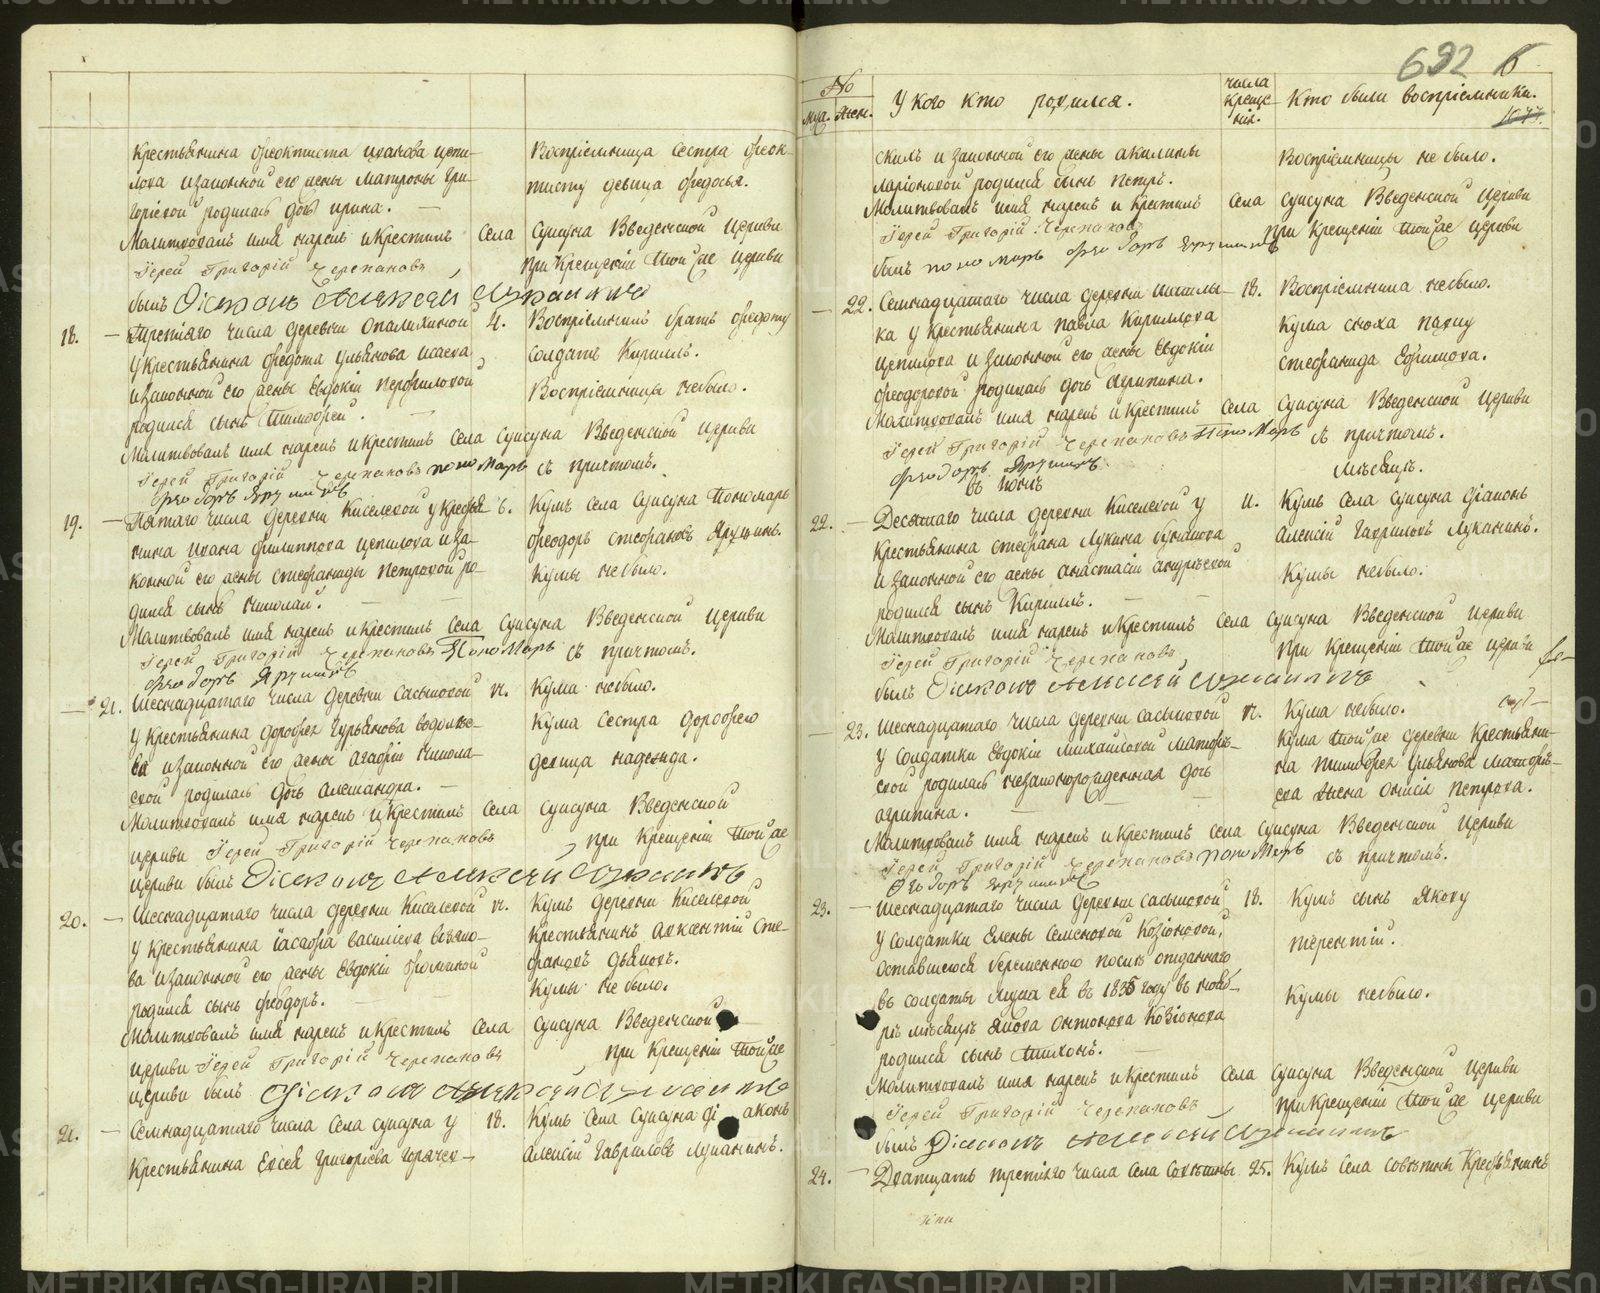 Крестьянина Феоктиста Иванова Цепи-
лова и законной его жены Матроны Гри-
горіевой родилась дочь Ирина.
Молитвовалъ имя нарекъ и Крестилъ
Села Суксуна Введенской Церкви
Іерей Григорій Черепановъ
при Крещеніи той же Церкви
былъ Діаконъ Алексѣй Луканинъ
Воспріемница Сестра Феок-
тисту девица Федосья.
18. Третіяго числа деревни Опалихиной
у Крестьянина Федота Ульянова Исаева
и законной его жены Евдокіи Перфиловой
родился сынъ Тимофей.
4. Воспріемникъ братъ Федоту
солдатъ Кириллъ.
Воспріемницы небыло.
Молитвовалъ имя нарекъ и Крестилъ Села Суксуна Введенской Церкви
Іерей Григорій Черепановъ пономарь
съ причтомъ.
Феодоръ Ярушинъ
19. Пятаго числа деревни Киселевой у Кресья-
нина Ивана Филиппова Цепилова и за-
конной его жены Стефаниды Петровой ро-
дился сынъ Николай.
6. Кумъ села Суксуна Пономарь
Феодоръ Стефановъ Ярушинъ.
Кумы небыло.
Молитвовалъ имя нарекъ и Крестилъ Села Суксуна Введенской Церкви
Іерей Григорій Черепановъ Пономарь
съ причтомъ.
Феодоръ Ярушинъ
21. Шеснадцатаго числа деревни Сасыковой
у Крестьянина Дорофея Гурьянова
и законной его жены Агафіи Никола-
евой родилась дочь Александра.
17. Кума небыло.
Кума Сестра Дорофею
девица Надежда.
Молитвовалъ имя нарекъ и Крестилъ Села Суксуна Введенской
Церкви Іерей Григорій Черепановъ
при Крещеніи той же
Церкви былъ Діаконъ Алексѣй Луканинъ
20. Шеснадцатаго числа деревни Киселевой
у Крестьянина Іасафа Василіева
и законной его жены Евдокіи Фоминой
родился сынъ Феодоръ.
17. Кумъ деревни Киселевой
Крестьянинъ Авксентій Сте-
фановъ Дьяковъ.
Кумы не было.
Молитвовалъ имя нарекъ и Крестилъ Села Суксуна Введенской
Церкви Іерей Григорій Черепановъ
при Крещеніи той же
Церкви былъ Діаконъ Алексѣй Луканинъ
21. Семнадцатаго числа Села Суксуна у
Крестьянина Евсея Григоріева Горячев-
18. Кумъ Села Суксуна діаконъ
Алексій Гавриловъ Луканинъ.
692 6
1677.
№
Муж. Жен.
У кого кто родился.
числа
Креще-
нія.
Кто были воспріемники.
скихъ и законной его жены Акилины
Ларіоновой родился сынъ Петръ.
Воспріемницы не было.
Молитвовалъ имя нарекъ и Крестилъ Села Суксуна Введенской Церкви
Іерей Григорій Черепановъ
при Крещеніи той же Церкви
былъ пономарь Феодоръ Ярушинъ
22. Семнадцатаго числа деревни
у Крестьянина Павла Кириллова
Цепилова и законной его жены Евдокіи
Феодоровой родилась дочь Агрипина.
18. Воспріемника небыло.
Кума сноха Павлу
Стефанида Ефимова.
Молитвовалъ имя нарекъ и Крестилъ Села Суксуна Введенской Церкви
Іерей Григорій Черепановъ Пономарь
съ причтомъ.
Феодоръ Ярушинъ.
22. Десятаго числа деревни Киселевой у
Крестьянина Стефана Лукина
и законной его жены Анастасіи Андреевой
родился сынъ Кириллъ.
11. Кумъ села Суксуна діаконъ
Алексій Гавриловъ Луканинъ.
Кумы небыло.
Молитвовалъ имя нарекъ и Крестилъ Села Суксуна Введенской Церкви
Іерей Григорій Черепановъ
при Крещеніи той же Церкви
былъ Діаконъ Алексѣй Луканинъ
23. Шеснадцатаго числа деревни Сасыковой
у Солдатки Евдокіи Михайловой Матфѣе-
вой родилась незаконорожденная дочь
Агрипина.
17. Кума небыло.
Кума той же деревни Крестьяни-
на Тимофея Ульянова Матфѣе-
ва жена Онисія Петрова.
Молитвовалъ имя нарекъ и Крестилъ Села Суксуна Введенской Церкви
Іерей Григорій Черепановъ пономарь
съ причтомъ.
Феодоръ Ярушинъ
23. Шеснадцатаго числа деревни Сасыковой
у Солдатки Елены Семеновой Козіоновой,
оставшееся беременною послѣ отданнаго
въ солдаты мужа ея въ 1835 году въ нояб-
рѣ мѣсяцѣ Якова Антонова Козіонова
родился сынъ Тихонъ.
18. Кумъ сынъ Якову
Терентій.
Кумы небыло.
Молитвовалъ имя нарекъ и Крестилъ Села Суксуна Введенской Церкви
Іерей Григорій Черепановъ
при Крещеніи той же Церкви
былъ Діаконъ Алексѣй Луканинъ
24. Двадцать третіяго числа Села Советины
25. Кумъ Села Советины Крестьянинъ
METRIKI.GASO-URAL.RU